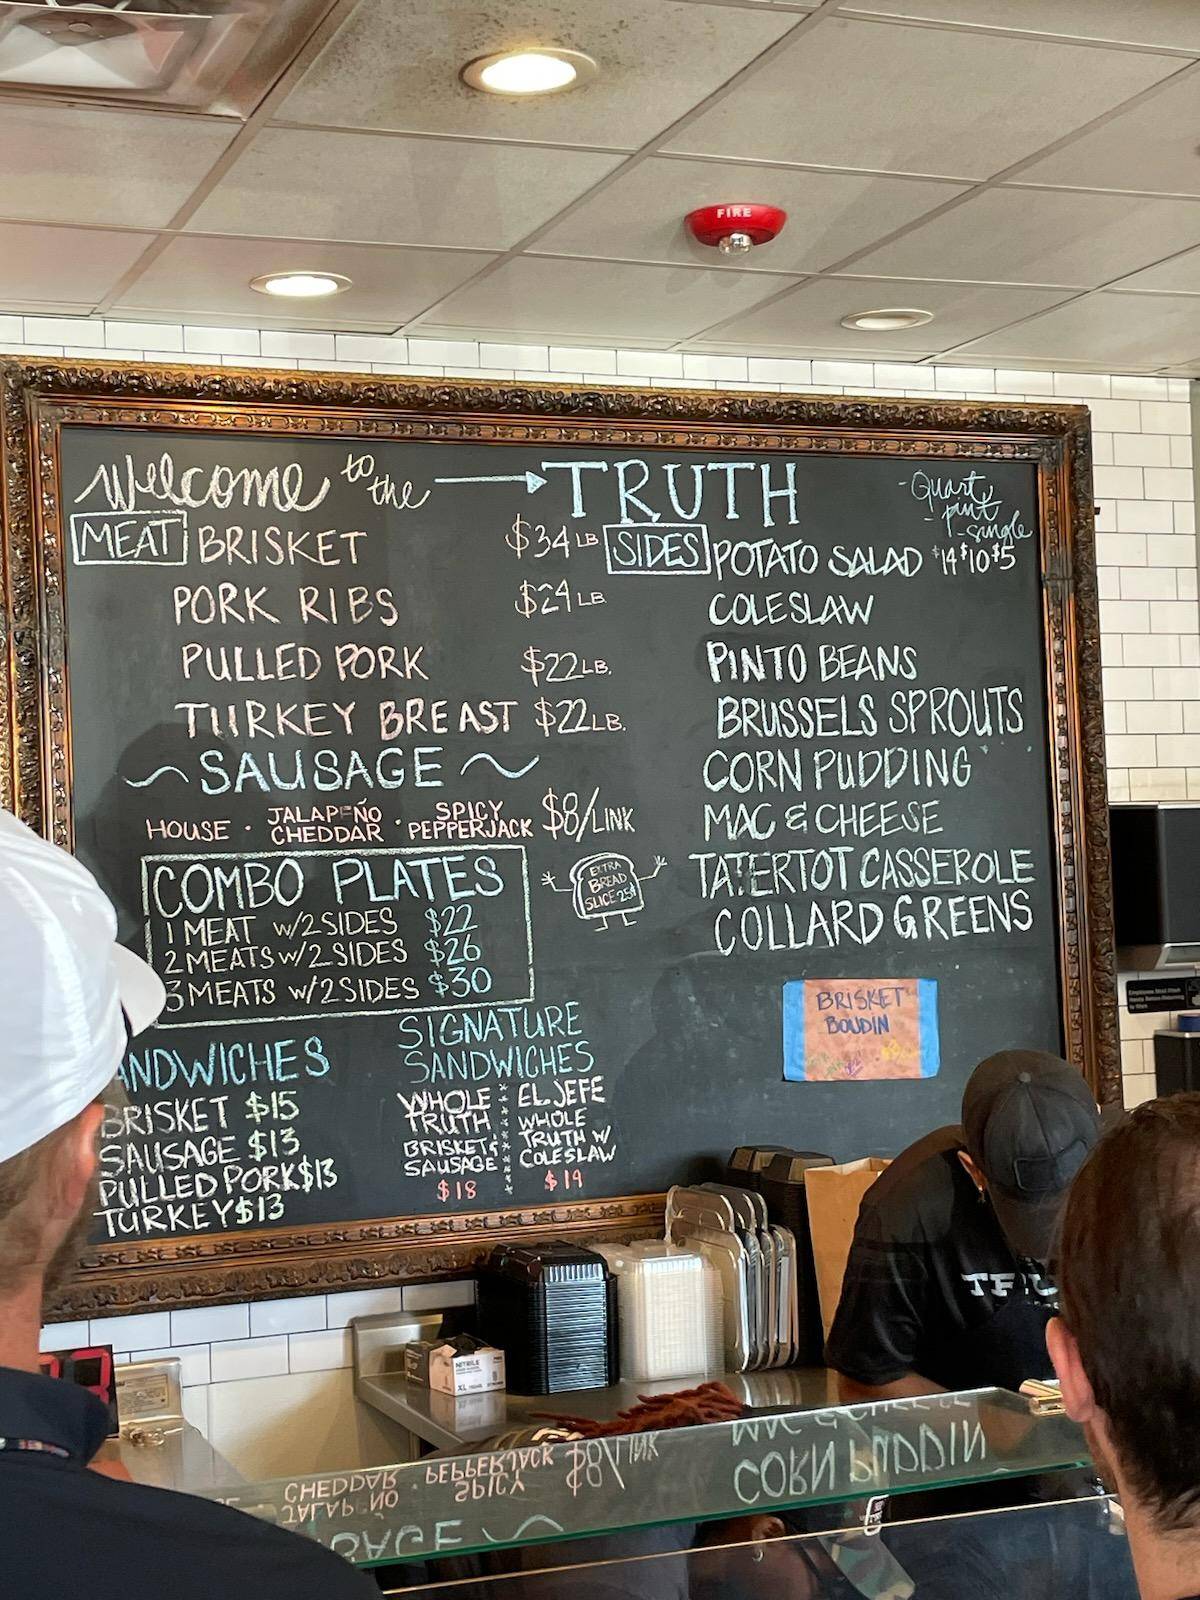 FIRE
Welcome to the → TRUTH
MEAT
BRISKET $34 LB
PORK RIBS $24 LB
PULLED PORK $22 LB.
TURKEY BREAST $22 LB.
~ SAUSAGE ~
HOUSE · JALAPEÑO CHEDDAR · SPICY PEPPERJACK $8/LINK
COMBO PLATES
1 MEAT W/2 SIDES $22
2 MEATS W/2 SIDES $26
3 MEATS W/2 SIDES $30
EXTRA
BREAD
SLICE 25¢
ANDWICHES
BRISKET $15
SAUSAGE $13
PULLED PORK $13
TURKEY $13
SIGNATURE
SANDWICHES
WHOLE
TRUTH
BRISKET &
SAUSAGE
$18
EL JEFE
WHOLE
TRUTH W/
COLESLAW
$19
- Quart
- pint
- single
SIDES
POTATO SALAD $14 $10 $5
COLESLAW
PINTO BEANS
BRUSSELS SPROUTS
CORN PUDDING
MAC & CHEESE
TATERTOT CASSEROLE
COLLARD GREENS
BRISKET
BOUDIN
NITRILE
XL